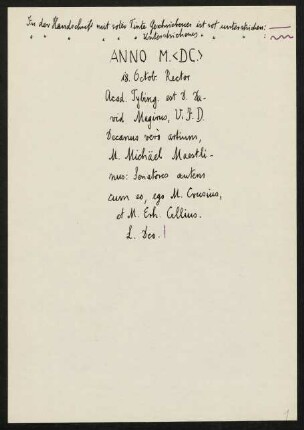 In der Handschrift mit roter Tinte Geschriebenes ist rot unterstrichen:
Unterstrichenes
ANNO M.<DC>
18. Octob. Rector
Acad. Tybing. est D. Da-
vid Magirus, V.J.D.
Decanus verò artium,
M. Michäel Maestli-
nus: Senatores autem
cum eo, ego M. Crusius,
et M. Erh. Cellius.
L. Deo.
1